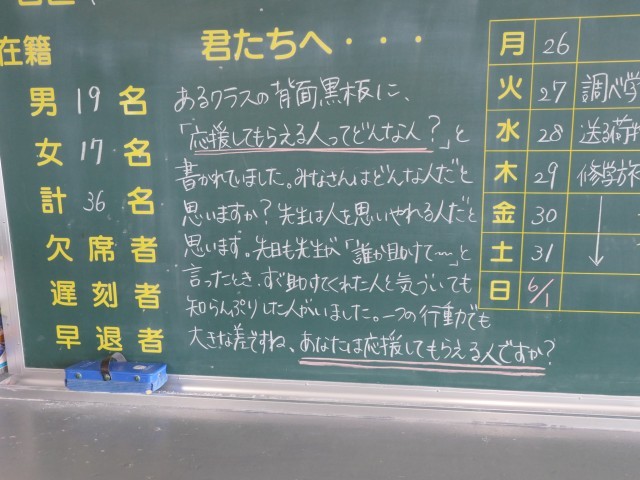 在籍
男 19 名
女 17 名
計 36 名
欠席者
遅刻者
早退者
君たちへ・・・
あるクラスの背面黒板に、
「応援してもらえる人ってどんな人?」と
書かれていました。みなさんはどんな人だと
思いますか?先生は人を思いやれる人だと
思います。先日も先生が「誰か助けて〜」と
言ったとき、すぐ助けてくれた人と気づいても
知らんぷりした人がいました。一つの行動でも
大きな差ですね、あなたは応援してもらえる人ですか?
月 26
火 27 調べ学
水 28 送る荷
木 29 修学旅
金 30
土 31
日 6/1